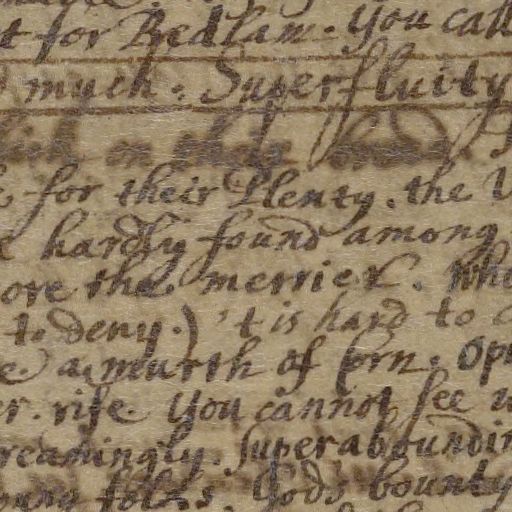 t for Bedlam. You call
much. Superfluity
for their Plenty. the
hardly found among
ore the merrier. Who
to deny.) 't is hard to
a murth of Corn. Op
er. rife. You cannot see
reamingly. Superaboundin
young folks. Gods bounty